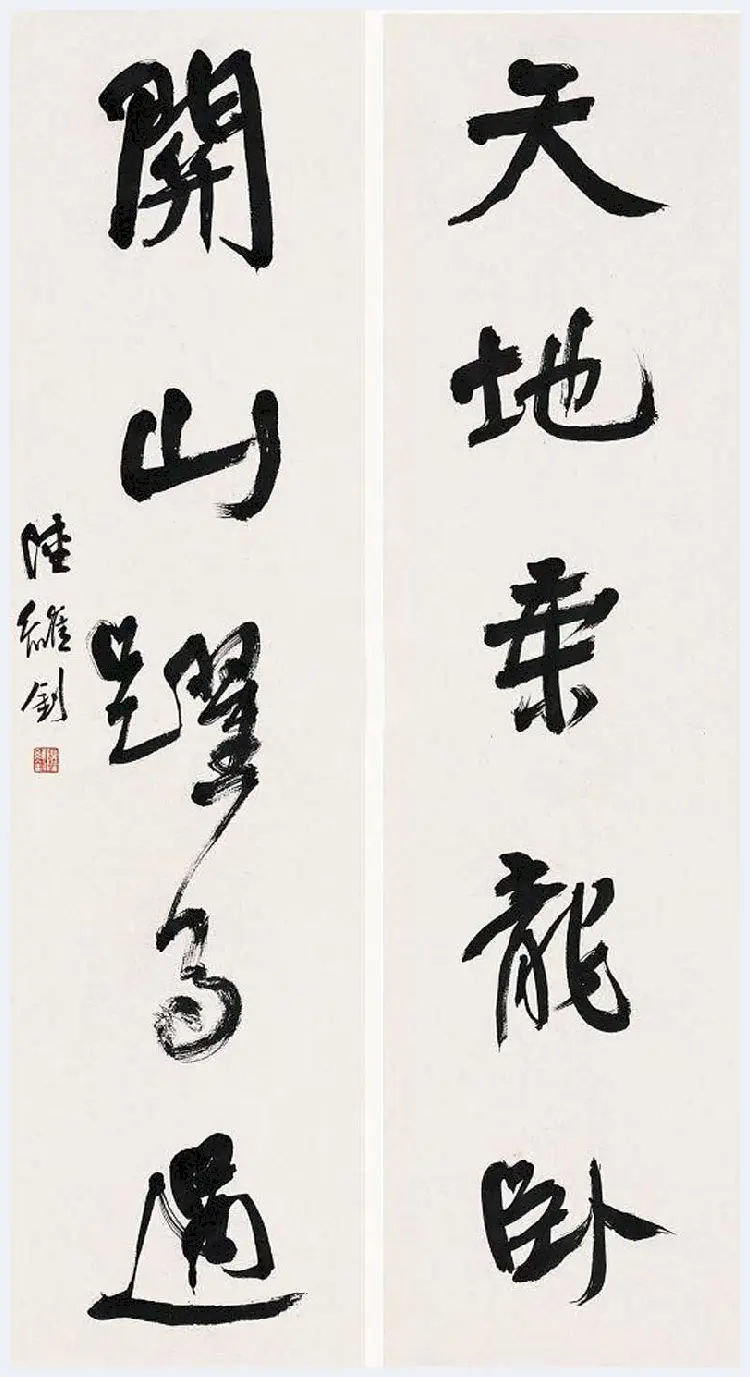 天地乘龍卧
關山躍馬過
陸維釗